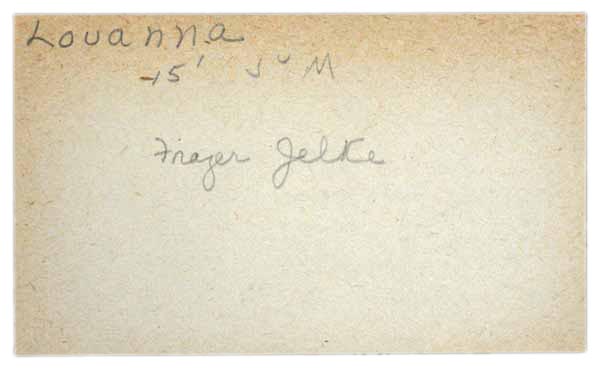 Louanna
15' J u M
Frazer Jelke